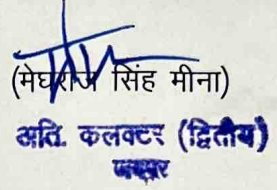 (मेघराज सिंह मीना)
अति. कलक्टर (द्वितीय)